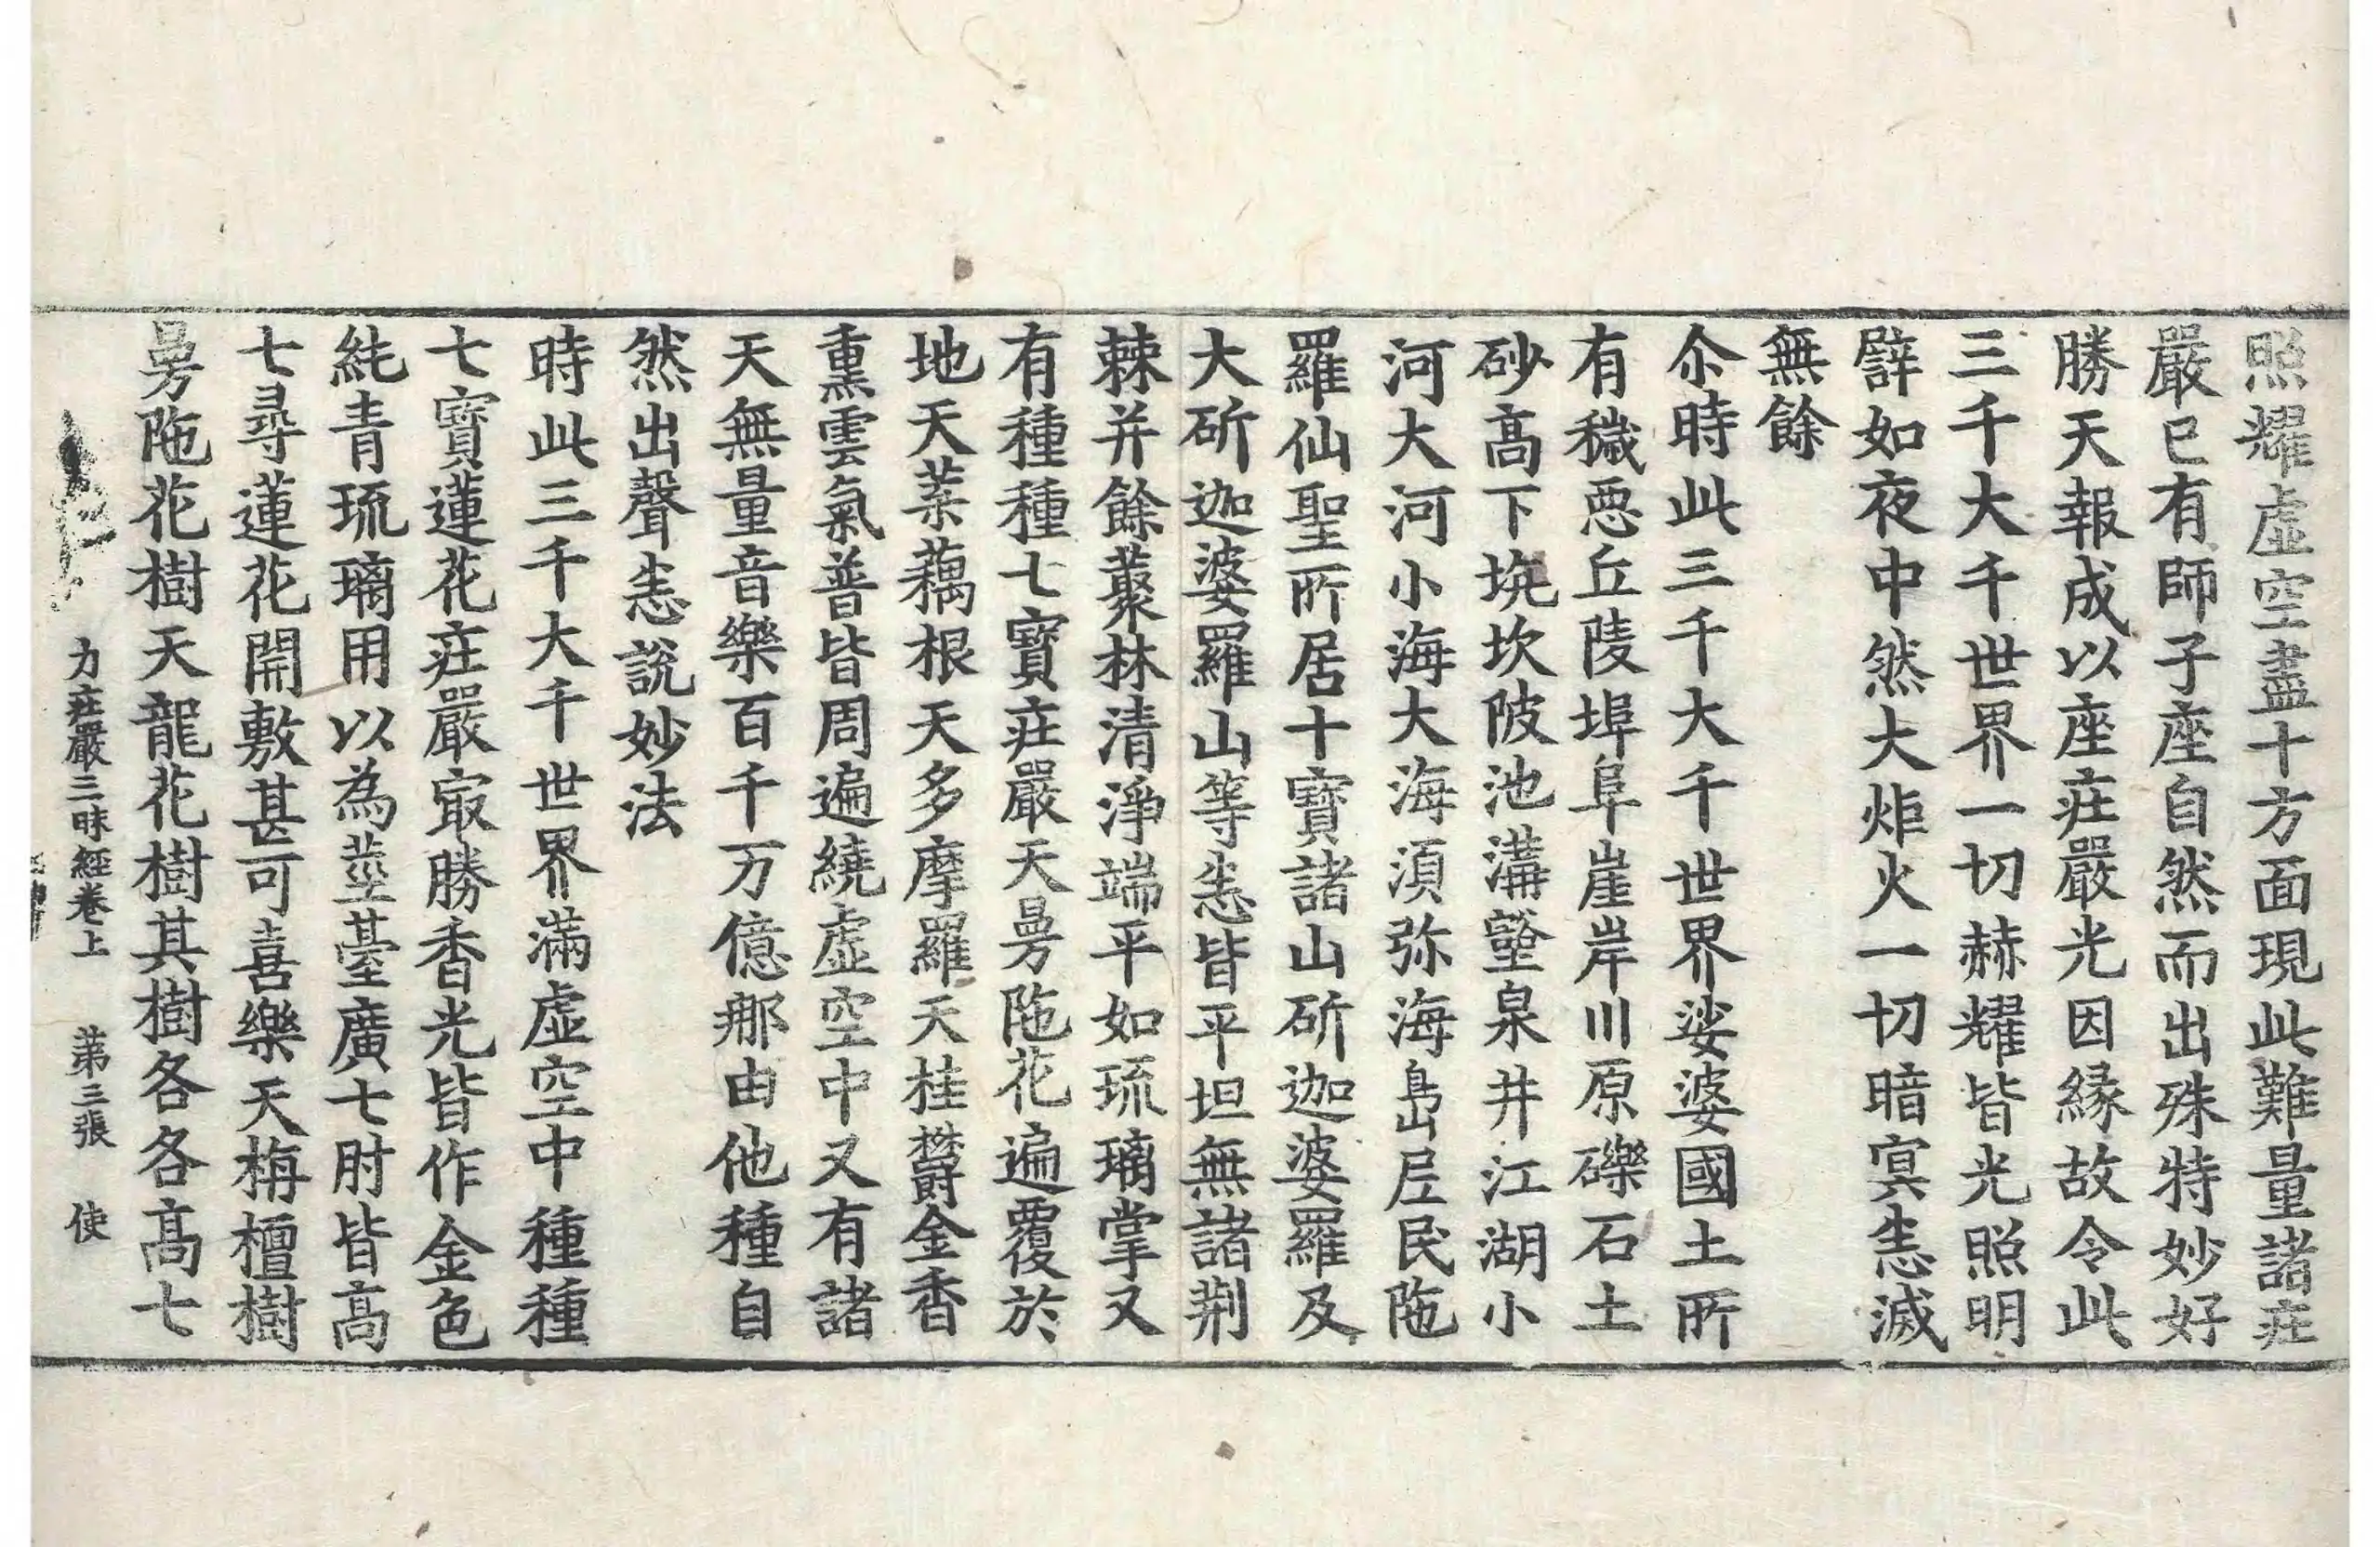 照耀虛空盡十方面現此難量諸㽵
嚴已有師子座自然而出殊特妙好
勝天報成以座㽵嚴光因緣故令此
三千大千世界一切赫耀皆光照明
譬如夜中然大炬火一切暗冥悉滅
無餘
尒時此三千大千世界娑婆國土所
有穢惡丘陵埠阜崖岸川原礫石土
砂高下坑坎陂池溝壑泉井江湖小
河大河小海大海須弥海島居民陁
羅仙聖所居十寶諸山斫迦婆羅及
大斫迦婆羅山等悉皆平坦無諸荆
棘并餘藂林清淨端平如琉璃掌又
有種種七寶㽵嚴天曼陁花遍覆於
地天葉藕根天多摩羅天桂欝金香
熏雲氣普皆周遍繞虛空中又有諸
天無量音樂百千万億那由他種自
然出聲悉說妙法
時此三千大千世界滿虛空中種種
七寶蓮花㽵嚴㝡勝香光皆作金色
純青琉璃用以為莖臺廣七肘皆高
七尋蓮花開敷甚可喜樂天栴檀樹
曼陁花樹天龍花樹其樹各各高七
力㽵嚴三昧經卷上 第三張 使